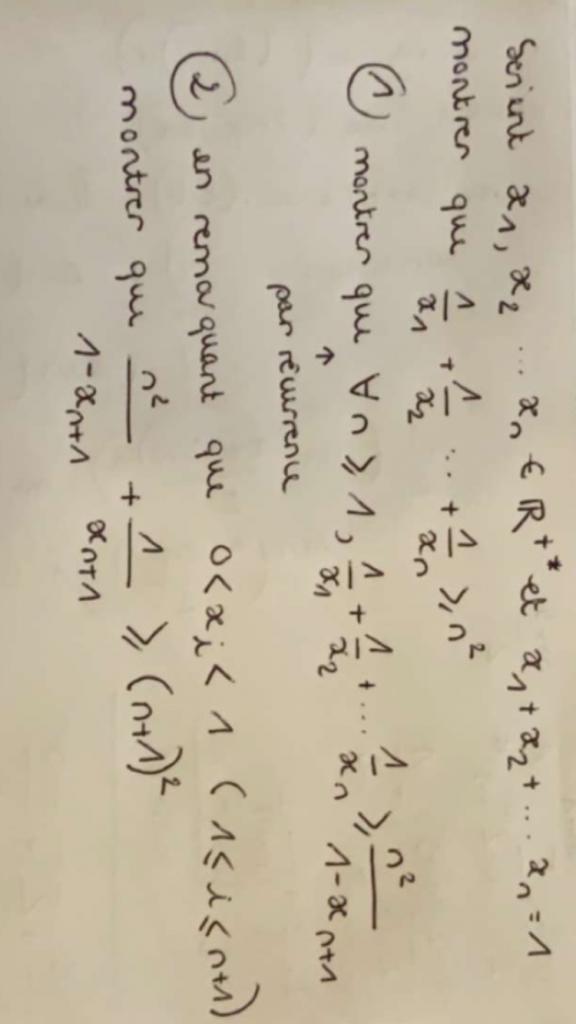 Soient x₁, x₂ ... xₙ ∈ ℝ⁺* et x₁ + x₂ + ... xₙ = 1
montrer que 1/x₁ + 1/x₂ ... + 1/xₙ ⩾ n²
① montrer que ∀ n ⩾ 1, 1/x₁ + 1/x₂ + ... 1/xₙ ⩾ n²/(1-xₙ₊₁)
↑
par récurrence
② en remarquant que 0 < xᵢ < 1 (1 ⩽ i ⩽ n+1)
montrer que n²/(1-xₙ₊₁) + 1/xₙ₊₁ ⩾ (n+1)²